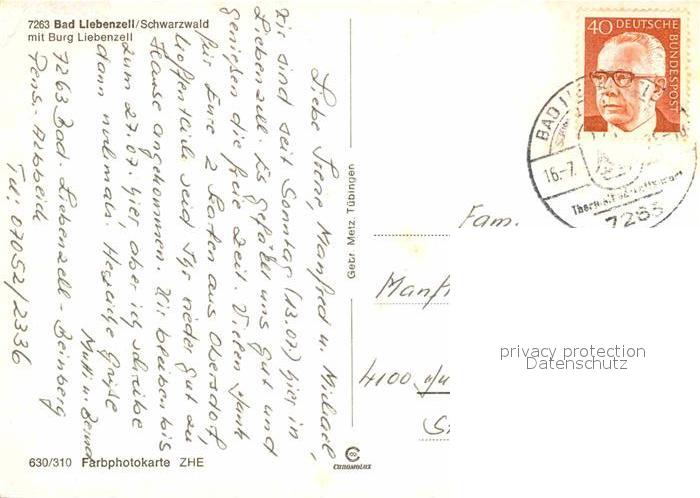 7263 Bad Liebenzell/Schwarzwald
mit Burg Liebenzell
Liebe Irene, Manfred u. Michael,
Wir sind seit Sonntag (13.07.) hier in
Liebenzell. Es gefällt uns gut und
genießen die freie Zeit. Vielen Dank
für Eure 2 Karten aus Oberstdorf,
hoffentlich seid Ihr wieder gut zu
Hause angekommen. Wir bleiben bis
zum 27.07. hier, aber ich schreibe
dann nochmals. Herzliche Grüße
Mutti u. Bernd
7263 Bad-Liebenzell-Beinberg
Pens.
Tel: 07052/2336
630/310 Farbphotokarte ZHE
Gebr. Metz, Tübingen
CHROMOLUX
40 DEUTSCHE
BUNDESPOST
BAD
16.-7.
7263
Fam.
Manf
4100 Du
privacy protection
Datenschutz